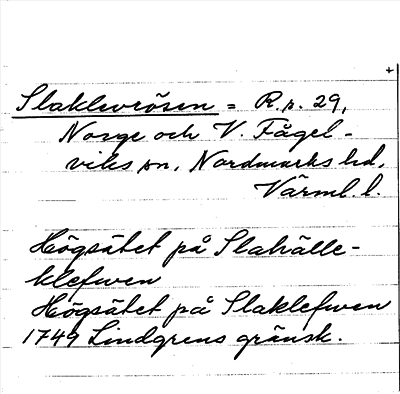 +
Slaklevrösen = R.p. 29,
Norge och V. Fågel-
viks sn, Nordmarks hd,
Värml. l.
Högsätet på Slahälle-
klefwen
Högsätet på Slaklefwen
1749 Lindgrens gränsk.